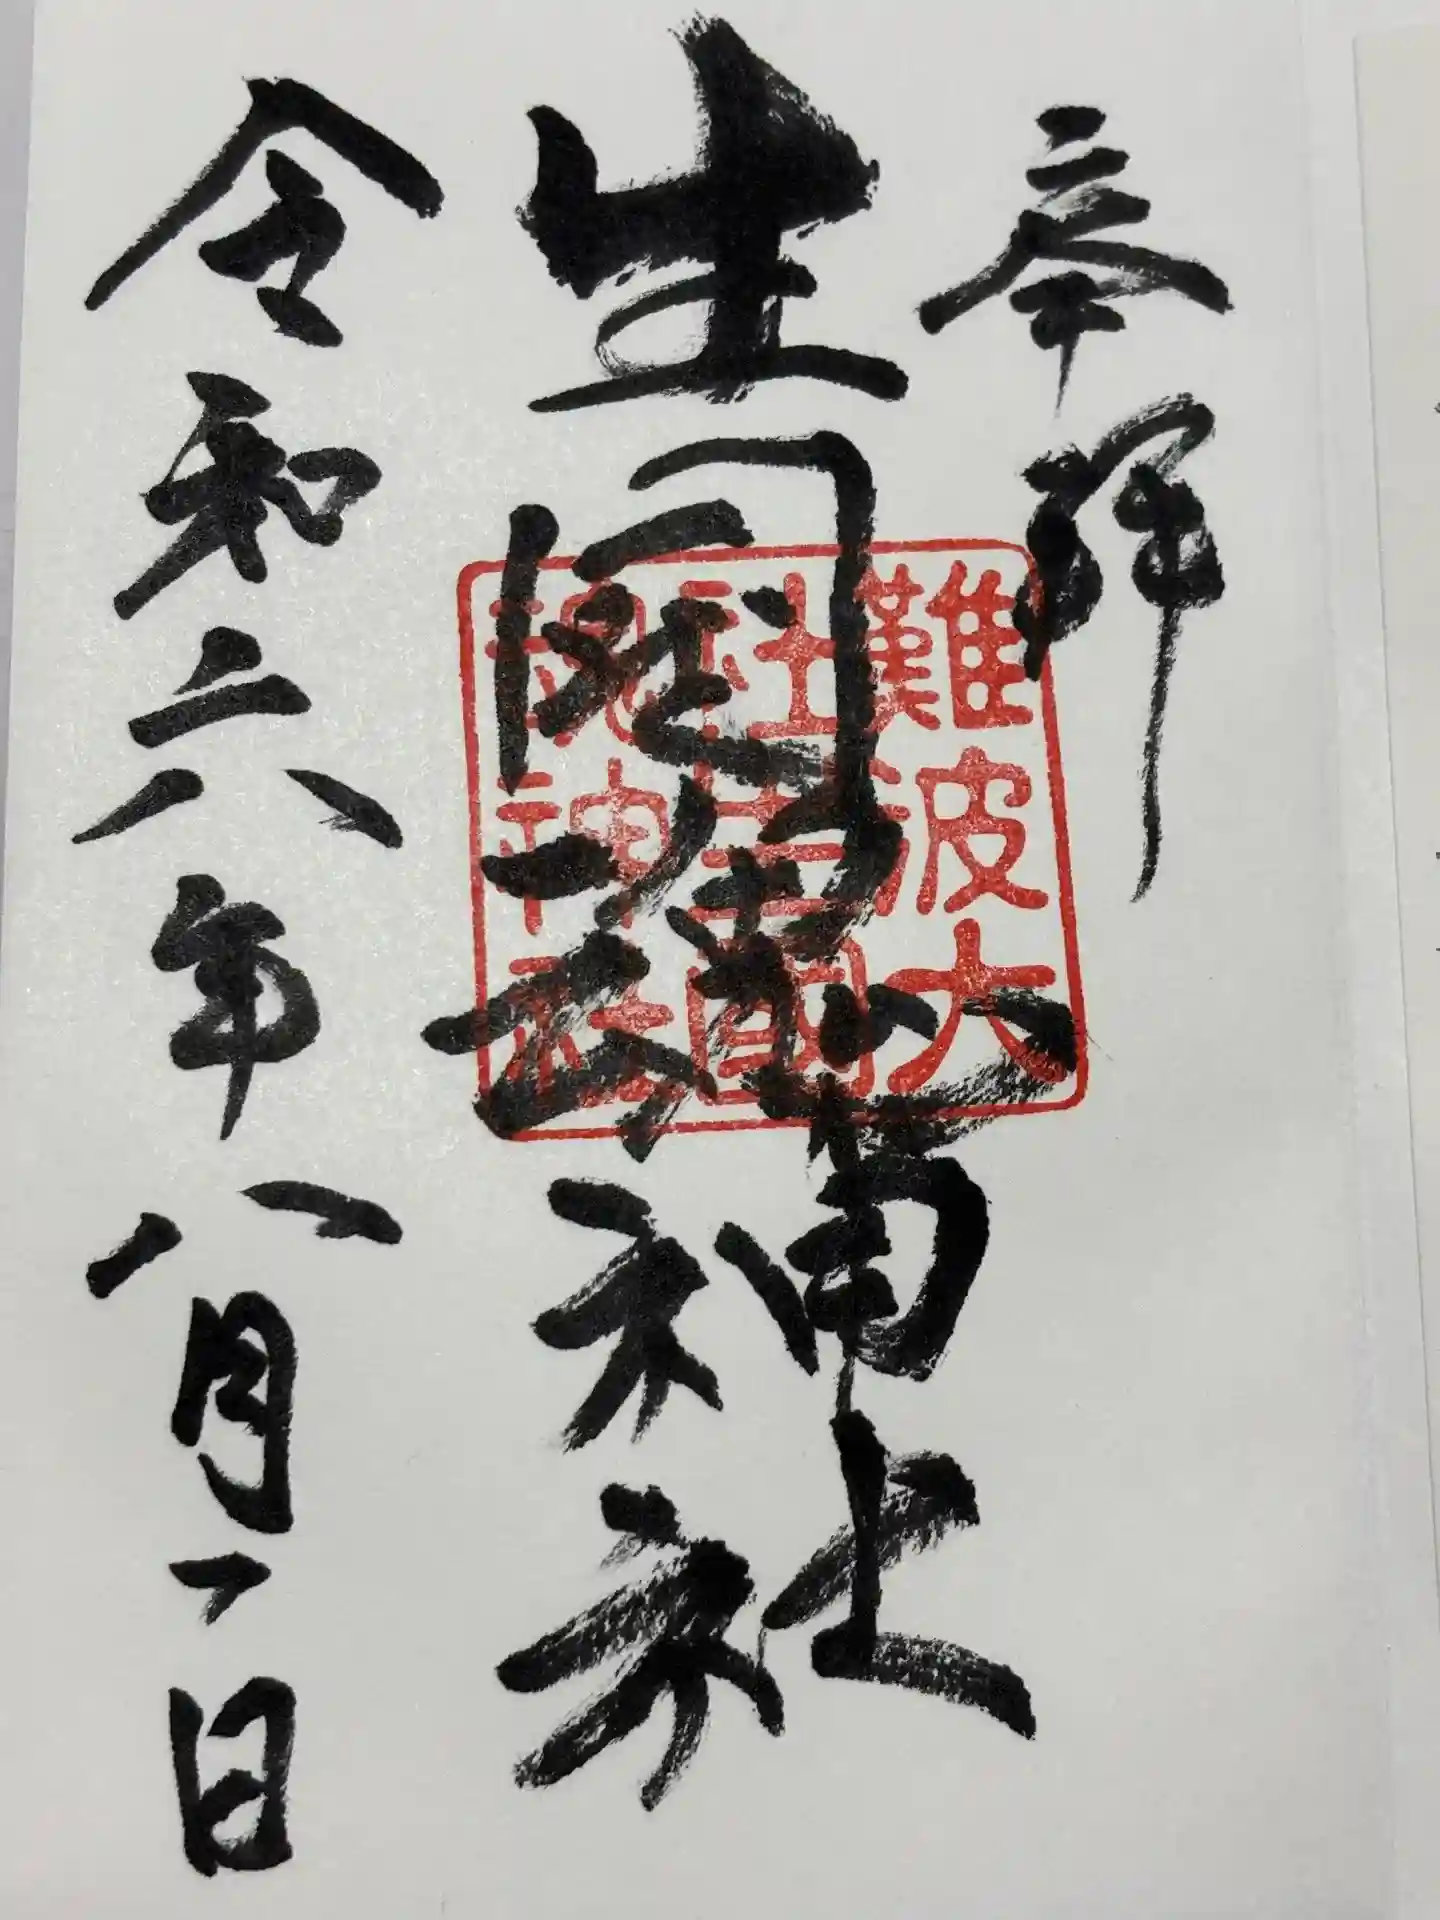 奉拝
生國魂神社
令和六年八月一日
難波大
社生國
魂神社